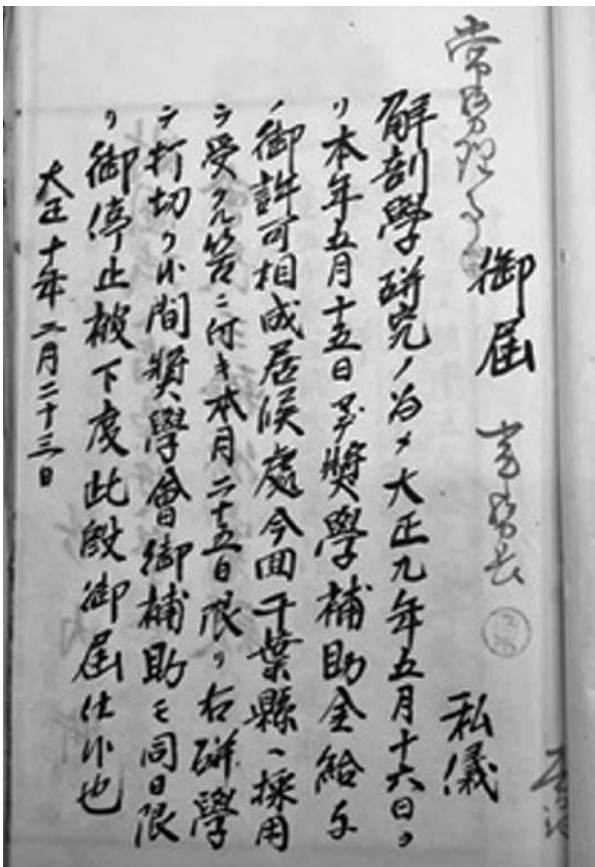 常務理事
御届
私儀
解剖學研究ノ為メ大正九年五月十六日ヨ
リ本年五月十五日マデ獎學補助金給与
ノ御許可相成居候處今回千葉縣ヘ採用
ヲ受クル筈ニ付キ本月二十五日限リ右研學
ヲ打切リ候間獎學會御補助モ同日限
リ御停止被下度此段御届仕候也
大正十年二月二十三日